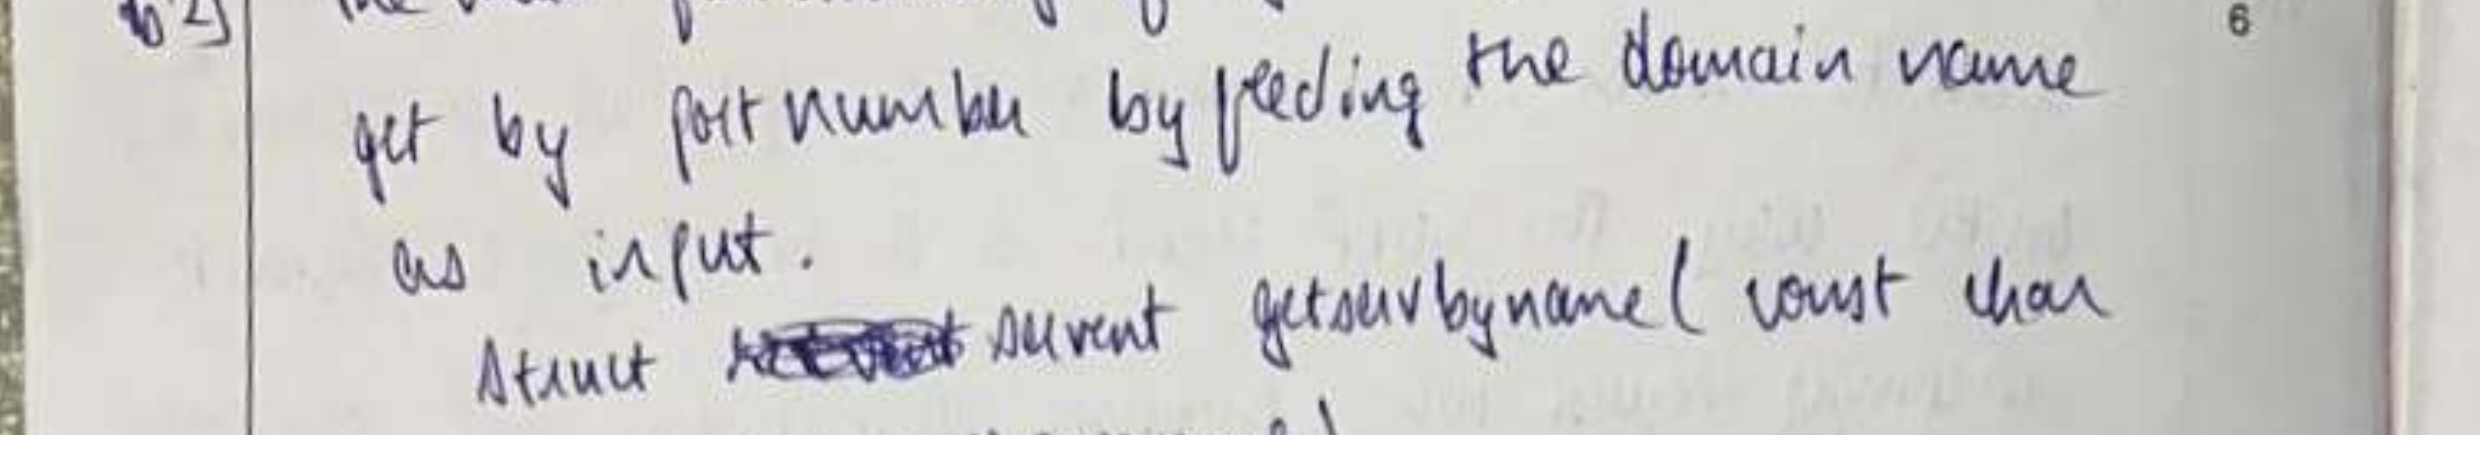 b2)
the
6
get by port number by feeding the domain name
as input.
struct servent getservbyname( const char